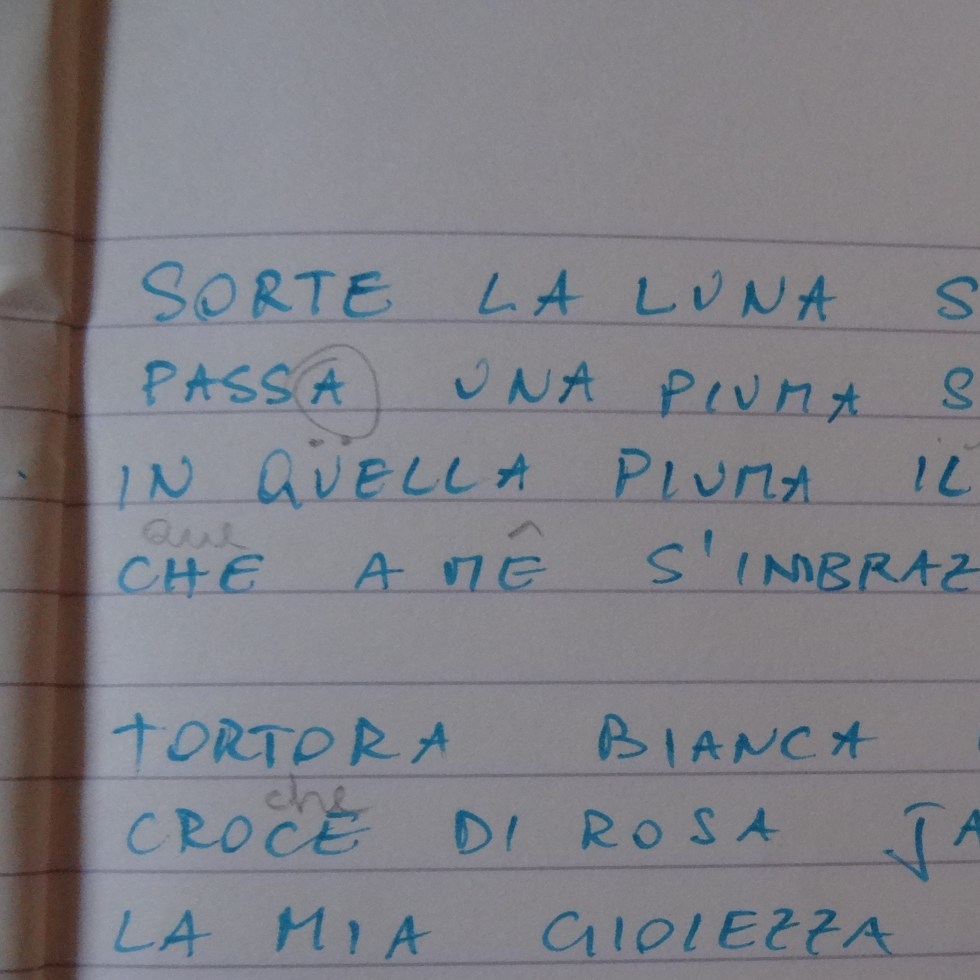 SORTE LA LUNA S
PASSA UNA PIUMA S
IN QÜELLA PIUMA IL
que
CHE A MÊ S'IMBRAZ
TORTORA BIANCA
che
CROCE DI ROSA JA
LA MIA GIOIEZZA